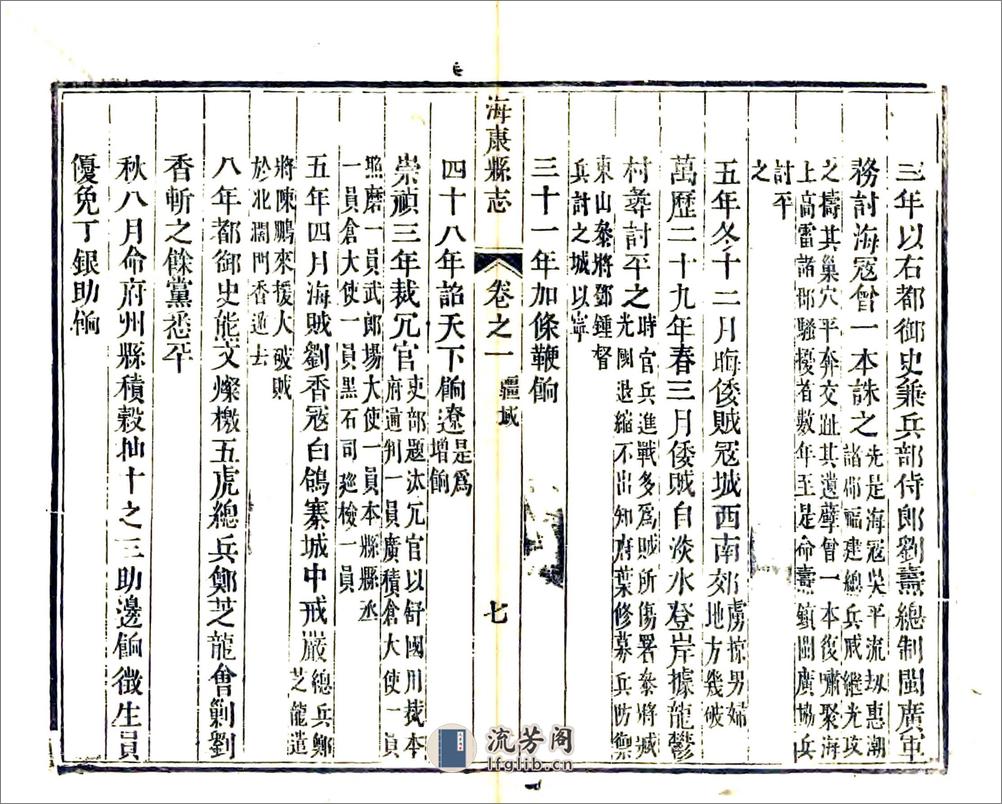 三年以右都御史兼兵部侍郎劉燾總制閩廣軍
務討海寇曾一本誅之
先是海寇吳平流刼惠潮
諸郡福建總兵戚繼光攻
之擣其巢穴平奔交趾其遺孽曾一本復嘯聚海
上高雷諸郡騷擾者數年至是命燾鎮閩廣協兵
討平
之
五年冬十二月晦倭賊寇城西南郊
虜掠男婦
地方幾破
萬歷二十九年春三月倭賊自淡水登岸據龍鬱
村彞討平之
時官兵進戰多為賊所傷署叅將戚
光國退縮不出知府葉修募兵防禦
東山叅將鄧鍾督
兵討之城以寧
三十一年加條鞭餉
海康縣志 卷之一 疆域 七
四十八年詔天下餉遼
是為
增餉
崇禎三年裁冗官
吏部題汰冗官以舒國用裁本
府通判一員廣積倉大使一員
照磨一員武郎場大使一員本縣縣丞
一員倉大使一員黑石司廵檢一員
五年四月海賊劉香寇白鴿寨城中戒嚴
總兵鄭
芝龍遣
將陳鵬來援大破賊
於北濶門香遁去
八年都御史熊文燦檄五虎總兵鄭芝龍會剿劉
香斬之餘黨悉平
秋八月命府州縣積穀抽十之三助邊餉徵生員
優免丁銀助餉
流芳阁
lfglib.cn